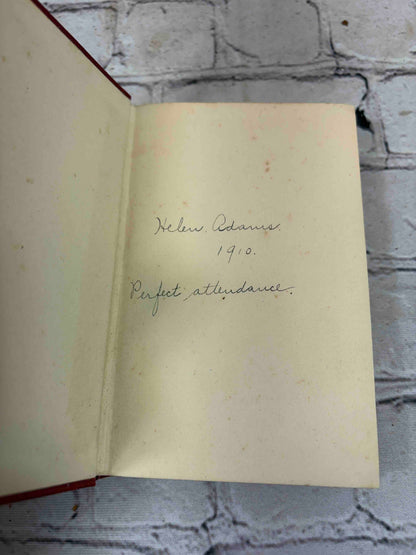 Helen Adams.
1910.
Perfect attendance.